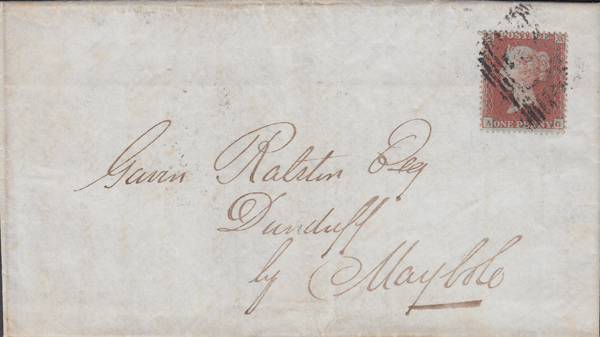 POSTAGE
ONE PENNY
Gavin Ralston Esq
Dunduff
by Maybole